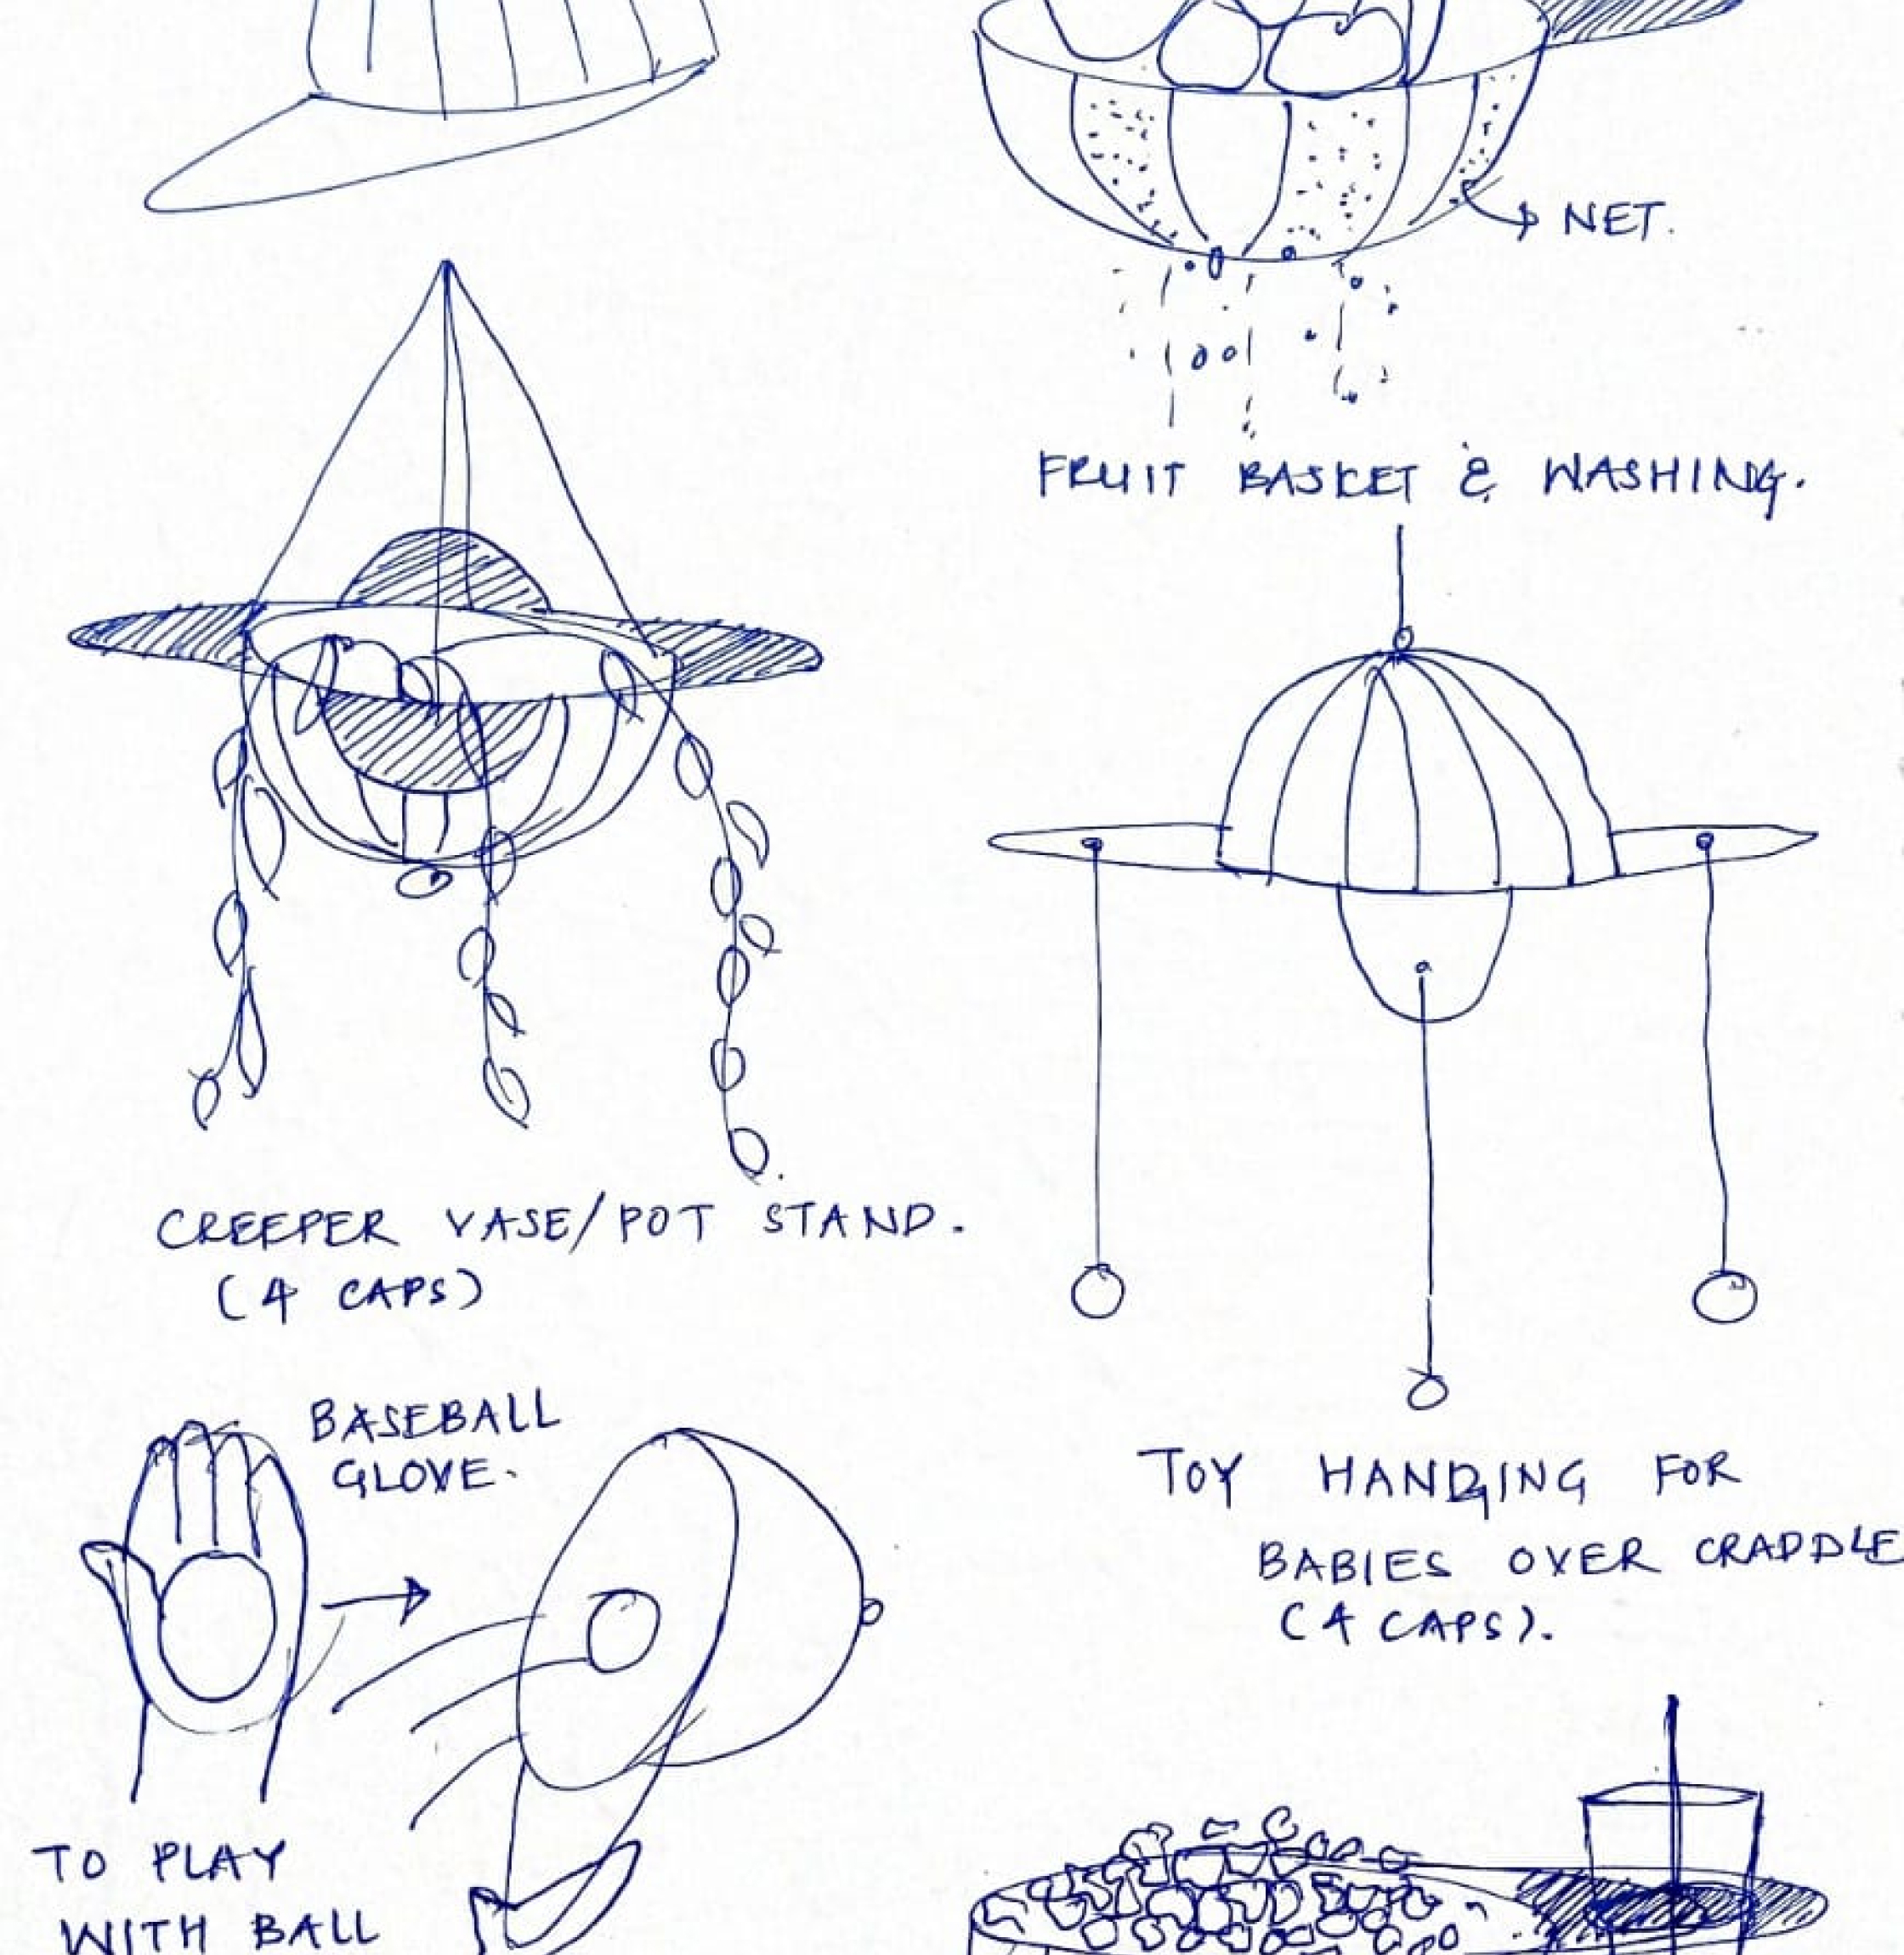 NET.
FRUIT BASKET & WASHING.
CREEPER VASE/POT STAND.
(4 CAPS)
TOY HANGING FOR
BABIES OVER CRADDLE
(4 CAPS).
BASEBALL
GLOVE.
TO PLAY
WITH BALL